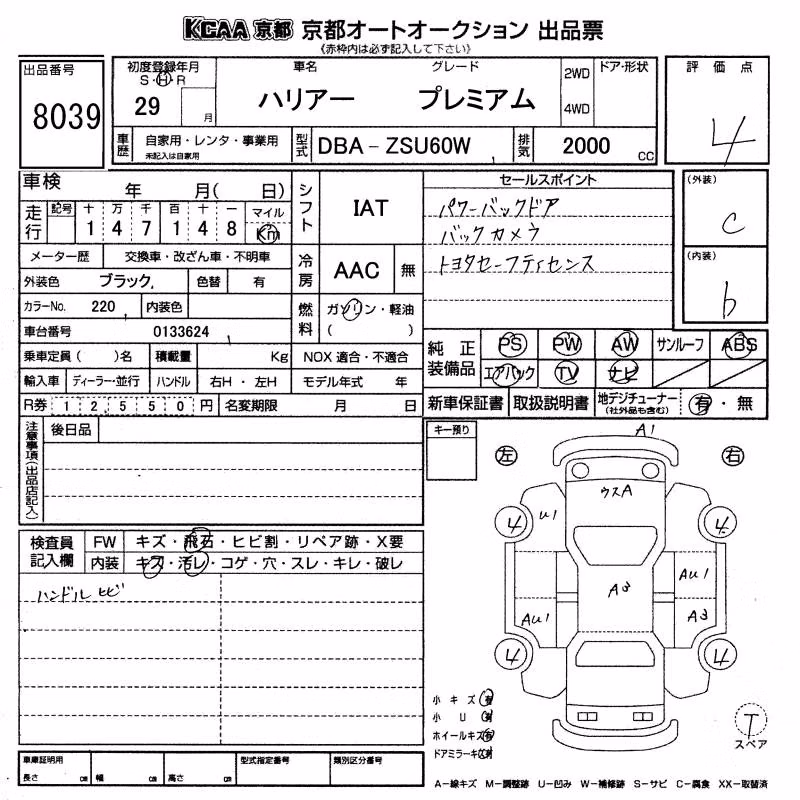 KCAA 京都 京都オートオークション 出品票
《赤枠内は必ず記入して下さい》
出品番号
8039
初度登録年月
S・H・R
29 月
車名 グレード
ハリアー プレミアム
2WD
4WD
ドア・形状
評価点
4
車歴
自家用・レンタ・事業用
未記入は自家用
型式
DBA-ZSU60W
排気
2000 CC
車検 年 月( 日)
走行
記号 十 万 千 百 十 一 マイル
1 4 7 1 4 8 Km
メーター歴 交換車・改ざん車・不明車
外装色 ブラック 色替 有
カラーNo. 220 内装色
車台番号 0133624
乗車定員( )名 積載量 Kg
輸入車 ディーラー・並行 ハンドル 右H・左H
R券 1 2,5 5 0 円 名変期限 月 日
シフト
IAT
冷房
AAC 無
燃料
ガソリン・軽油
( )
NOX 適合・不適合
モデル年式 年
セールスポイント
パワーバックドア
バックカメラ
トヨタセーフティセンス
(外装)
C
(内装)
b
純正装備品
PS PW AW サンルーフ ABS
エアバック TV ナビ
新車保証書 取扱説明書 地デジチューナー
(社外品も含む)
有・無
注意事項(出品店記入)
後日品
キー預り
検査員記入欄
FW キズ・飛石・ヒビ割・リペア跡・X要
内装 キズ・汚レ・コゲ・穴・スレ・キレ・破レ
ハンドル ヒビ
左 右
A1
ウスA
U1
4 4
AU1
A3
AU1 A3
4 4
小キズ 有
小U 有
ホイールキズ 有
ドアミラーキズ 有
T
スペア
車庫証明用
長さ cm 幅 cm 高さ cm
型式指定番号
類別区分番号
A-線キズ M-調整跡 U-凹み W-補修跡 S-サビ C-腐食 XX-取替済